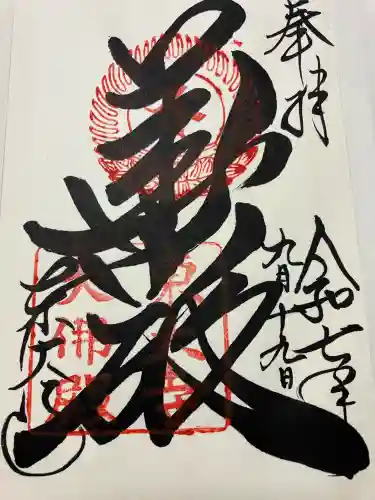 奉拝
令和七年
九月十九日
華厳
東大寺
東大寺
大佛殿